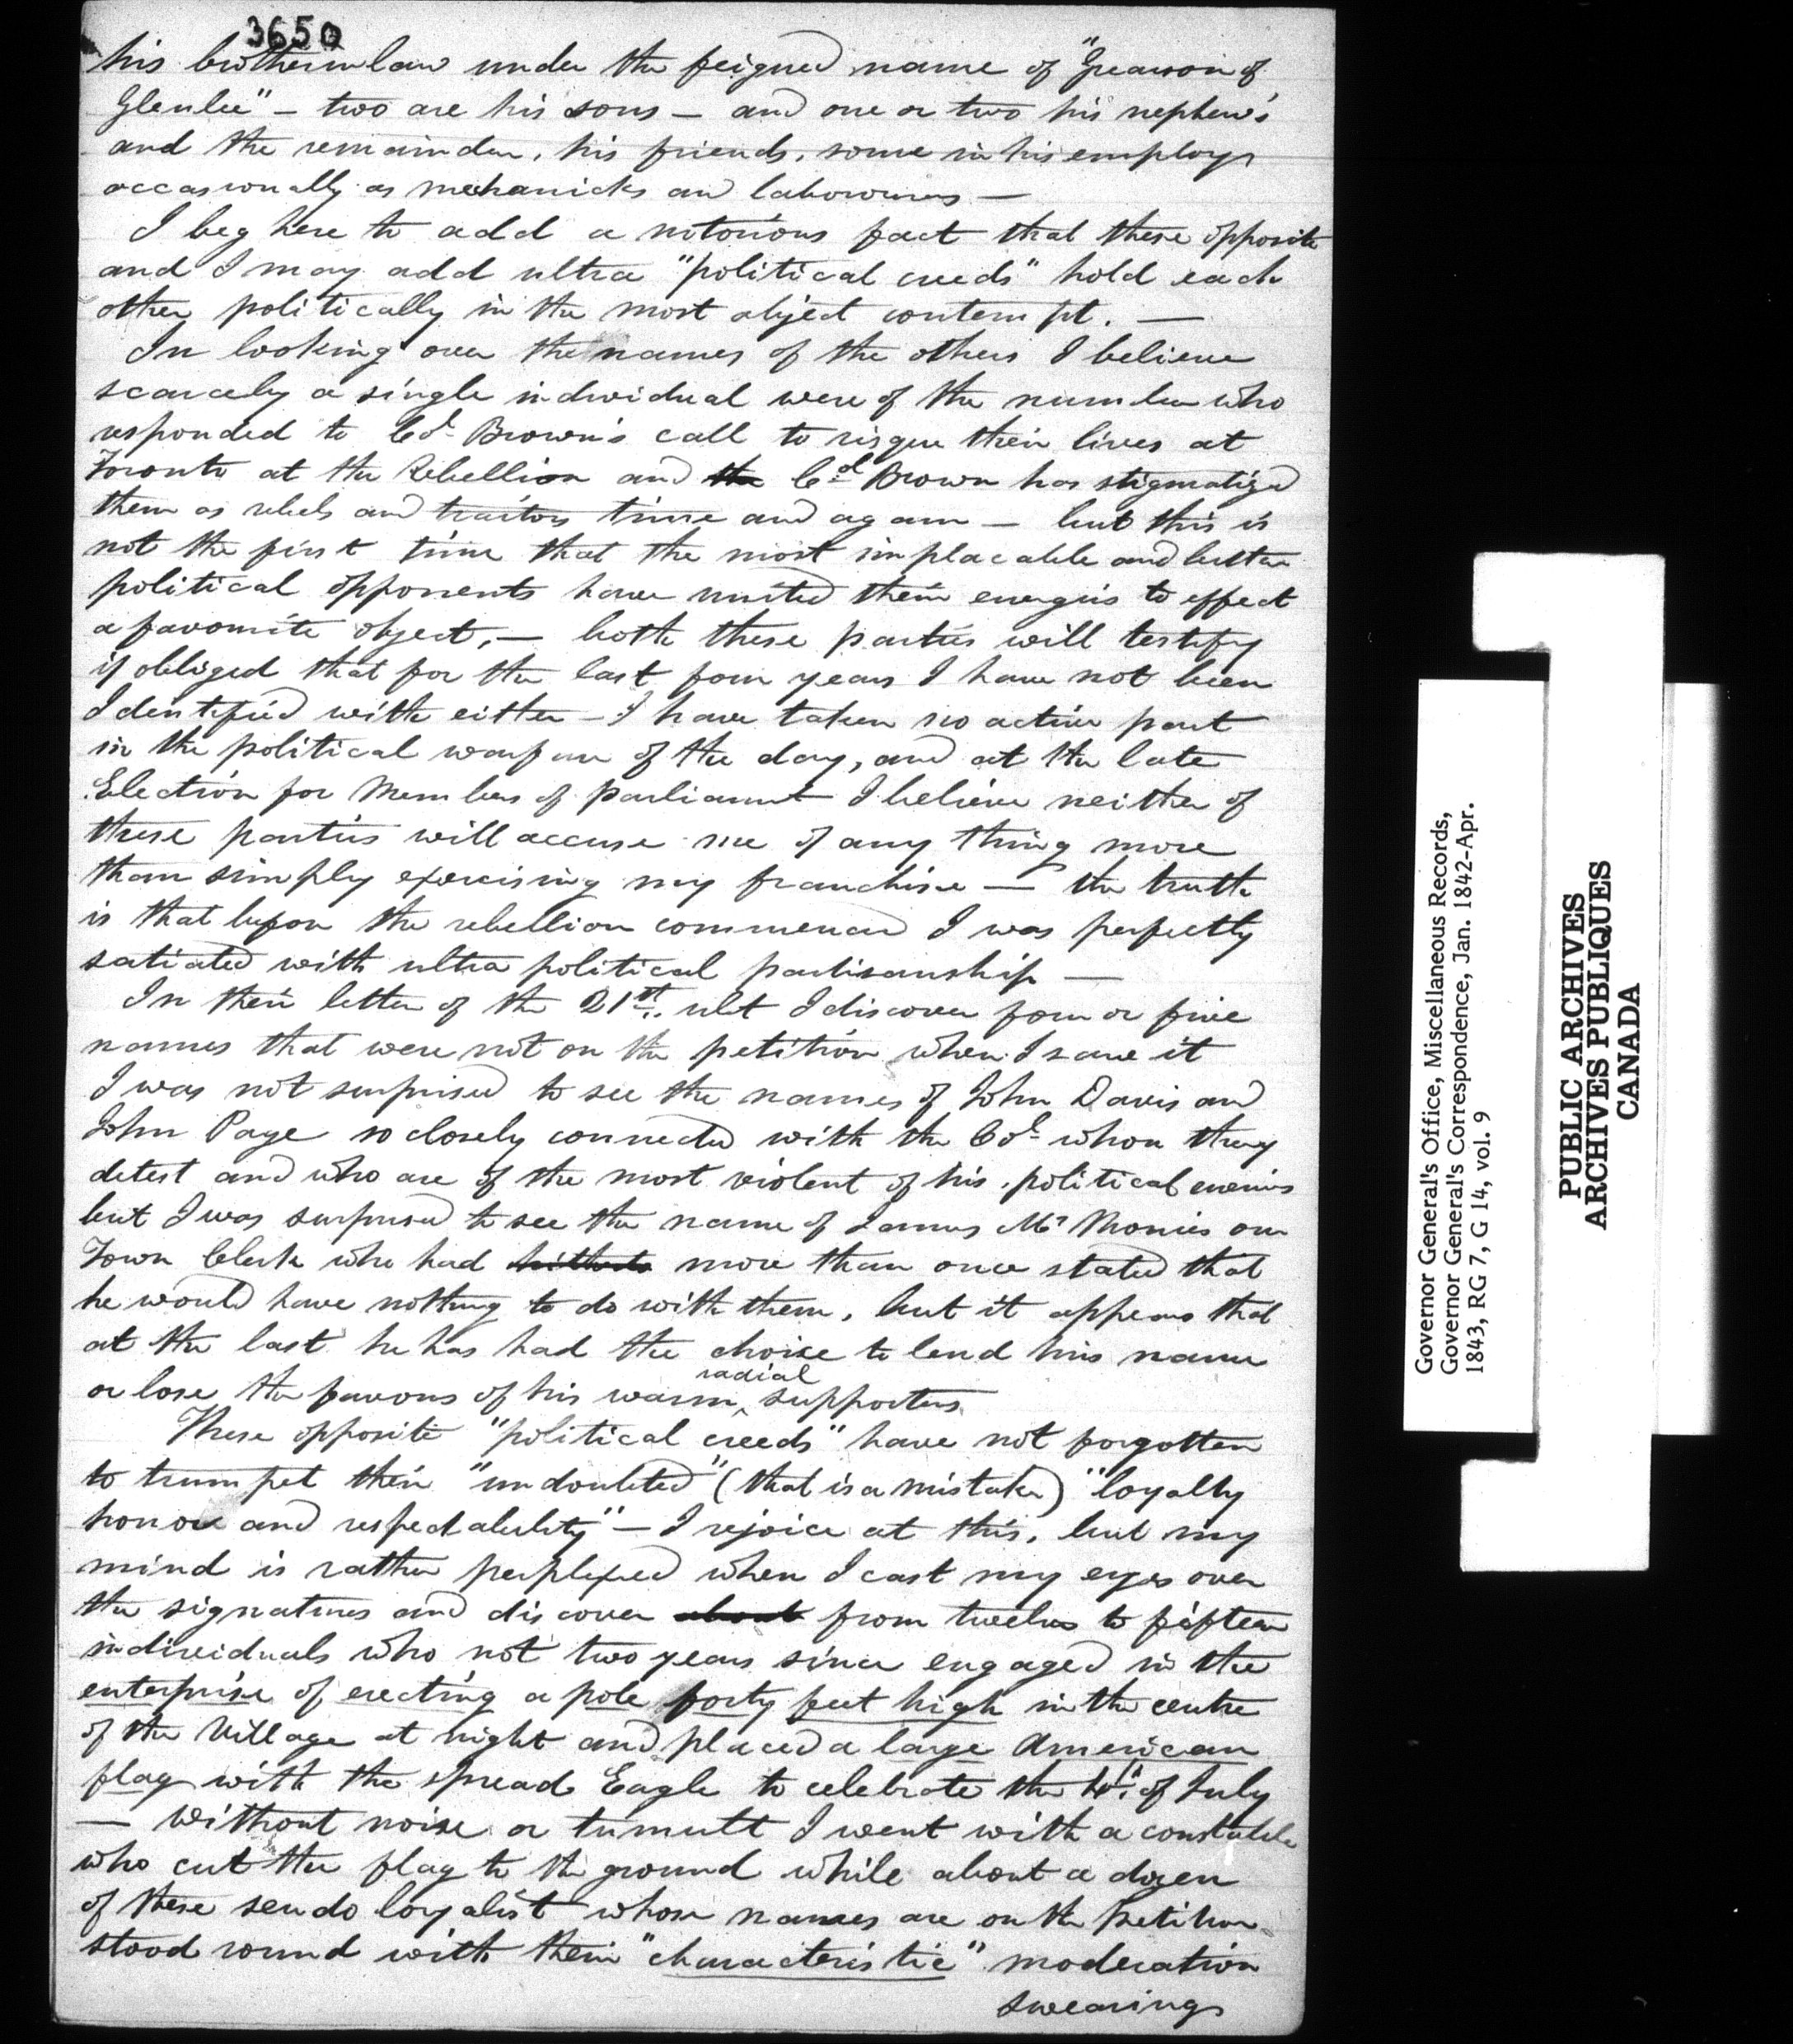 3650
his brotherinlaw under the feigned name of "Grearson of
Glenlee" – two are his sons – and one or two his nephew's
and the remainder, his friends, some in his employ
occasionally as mechanicks and labourers —
I beg here to add a notorious fact that these opposite
and I may add ultra "political creeds" hold each
other politically in the most abject contempt. —
In looking over the names of the others I believe
scarcely a single individual were of the number who
responded to Col Brown's call to risque their lives at
Toronto at the Rebellion and the Col Brown has stigmatized
them as rebels and traitors time and again — but this is
not the first time that the most implacable and bitter
political opponents have united their energies to effect
a favourite object, — both these parties will testify
if obliged that for the last four years I have not been
Identified with either – I have taken no active part
in the political warfare of the day, and at the late
Election for Members of parliament I believe neither of
these parties will accuse me of any thing more
than simply exercising my franchise — the truth
is that before the rebellion commenced I was perfectly
satiated with ultra political partisanship —
In their letter of the 21st ult I discover four or five
names that were not on the petition when I saw it
I was not surprised to see the names of John Davis and
John Page so closely connected with the Col whom they
detest and who are of the most violent of his political enemies
but I was surprised to see the name of James McMonies our
Town Clerk who had hitherto more than once stated that
he would have nothing to do with them, but it appears that
at the last he has had the choise to lend his name
or lose the favours of his warm radial supporters
These opposite "political creeds" have not forgotten
to trumpet their "undoubted" (that is a mistake) "loyalty
honor and respectability" – I rejoice at this, but my
mind is rather perplexed when I cast my eyes over
the signatures and discover about from twelve to fifteen
individuals who not two years since engaged in the
enterprise of erecting a pole forty feet high in the centre
of the Village at night and placed a large American
flag with the spread Eagle to celebrate the 4th of July
— Without noise or tumult I went with a constable
who cut the flag to the ground while about a dozen
of these seudo loyalist whose names are on the petition
stood round with their "characteristic" moderation
swearings
Governor General's Office, Miscellaneous Records,
Governor General's Correspondence, Jan. 1842-Apr.
1843, RG 7, G 14, vol. 9
PUBLIC ARCHIVES
ARCHIVES PUBLIQUES
CANADA